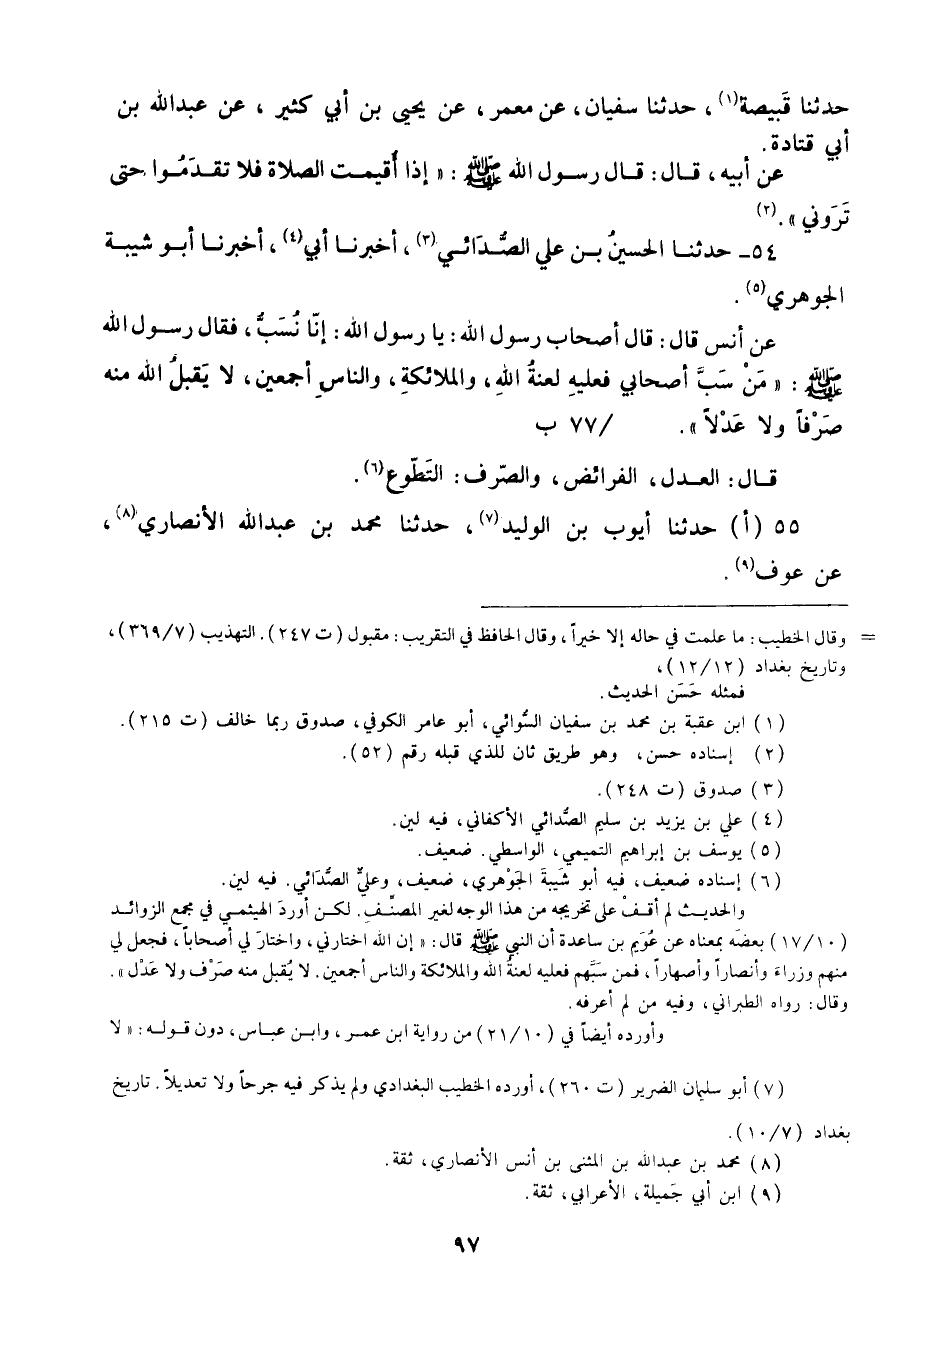 حدثنا قَبيصة(١)، حدثنا سفيان، عن معمر، عن يحيى بن أبي كثير، عن عبدالله بن
أبي قتادة.
عن أبيه، قال: قال رسول الله ﷺ: « إذا أُقيمت الصلاة فلا تقدَمُوا حتى
تَرَوني ».(٢)
٥٤ـ حدثنا الحسينُ بن علي الصُّدَائي(٣)، أخبرنا أبي(٤)، أخبرنا أبو شيبة
الجوهري(٥).
عن أنس قال: قال أصحاب رسول الله: يا رسول الله: إنّا نُسَبُّ، فقال رسول الله
ﷺ: « مَنْ سَبَّ أصحابي فعليهِ لعنةُ اللهِ، والملائكةِ، والناسِ أجمعين، لا يَقبلُ الله منه
صَرْفاً ولا عَدْلاً ». /٧٧ ب
قال: العدل، الفرائض، والصّرف: التَطّوع(٦).
٥٥ (أ) حدثنا أيوب بن الوليد(٧)، حدثنا محمد بن عبدالله الأنصاري(٨)،
عن عوف(٩).
= وقال الخطيب: ما علمت في حاله إلا خيراً، وقال الحافظ في التقريب: مقبول (ت ٢٤٧). التهذيب (٣٦٩/٧)،
وتاريخ بغداد (١٢/١٢)،
فمثله حَسَن الحديث.
(١) ابن عقبة بن محمد بن سفيان السُّوائي، أبو عامر الكوفي، صدوق ربما خالف (ت ٢١٥).
(٢) إسناده حسن، وهو طريق ثان للذي قبله رقم (٥٢).
(٣) صدوق (ت ٢٤٨).
(٤) علي بن يزيد بن سليم الصُّدائي الأكفاني، فيه لين.
(٥) يوسف بن إبراهيم التميمي، الواسطي. ضعيف.
(٦) إسناده ضعيف، فيه أبو شَيبةَ الجَوْهري، ضعيف، وعليٌّ الصُّدَائي. فيه لين.
والحديث لم أقفْ على تخريجه من هذا الوجه لغير المصنِّف. لكن أوردَ الهيثمي في مجمع الزوائد
(١٧/١٠) بعضَه بمعناه عن عُوَيم بن ساعدة أن النبي ﷺ قال: « إن الله اختارني، واختارَ لي أصحاباً، فجعل لي
منهم وزراءَ وأنصاراً وأصهاراً، فمن سَبَّهم فعليه لعنةُ الله والملائكة والناس أجمعين. لا يُقبل منه صَرْف ولا عَدْل ».
وقال: رواه الطبراني، وفيه من لم أعرفه.
وأورده أيضاً في (٢١/١٠) من رواية ابن عمر، وابن عباس، دون قوله: « لا
(٧) أبو سليمان الضرير (ت ٢٦٠)، أورده الخطيب البغدادي ولم يذكر فيه جرحاً ولا تعديلاً. تاريخ
بغداد (١٠/٧).
(٨) محمد بن عبدالله بن المثنى بن أنس الأنصاري، ثقة.
(٩) ابن أبي جَميلة، الأعرابي، ثقة.
٩٧